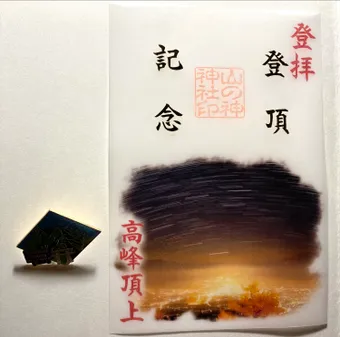 登拝
登頂
記念
山の神
神社印
高峰頂上